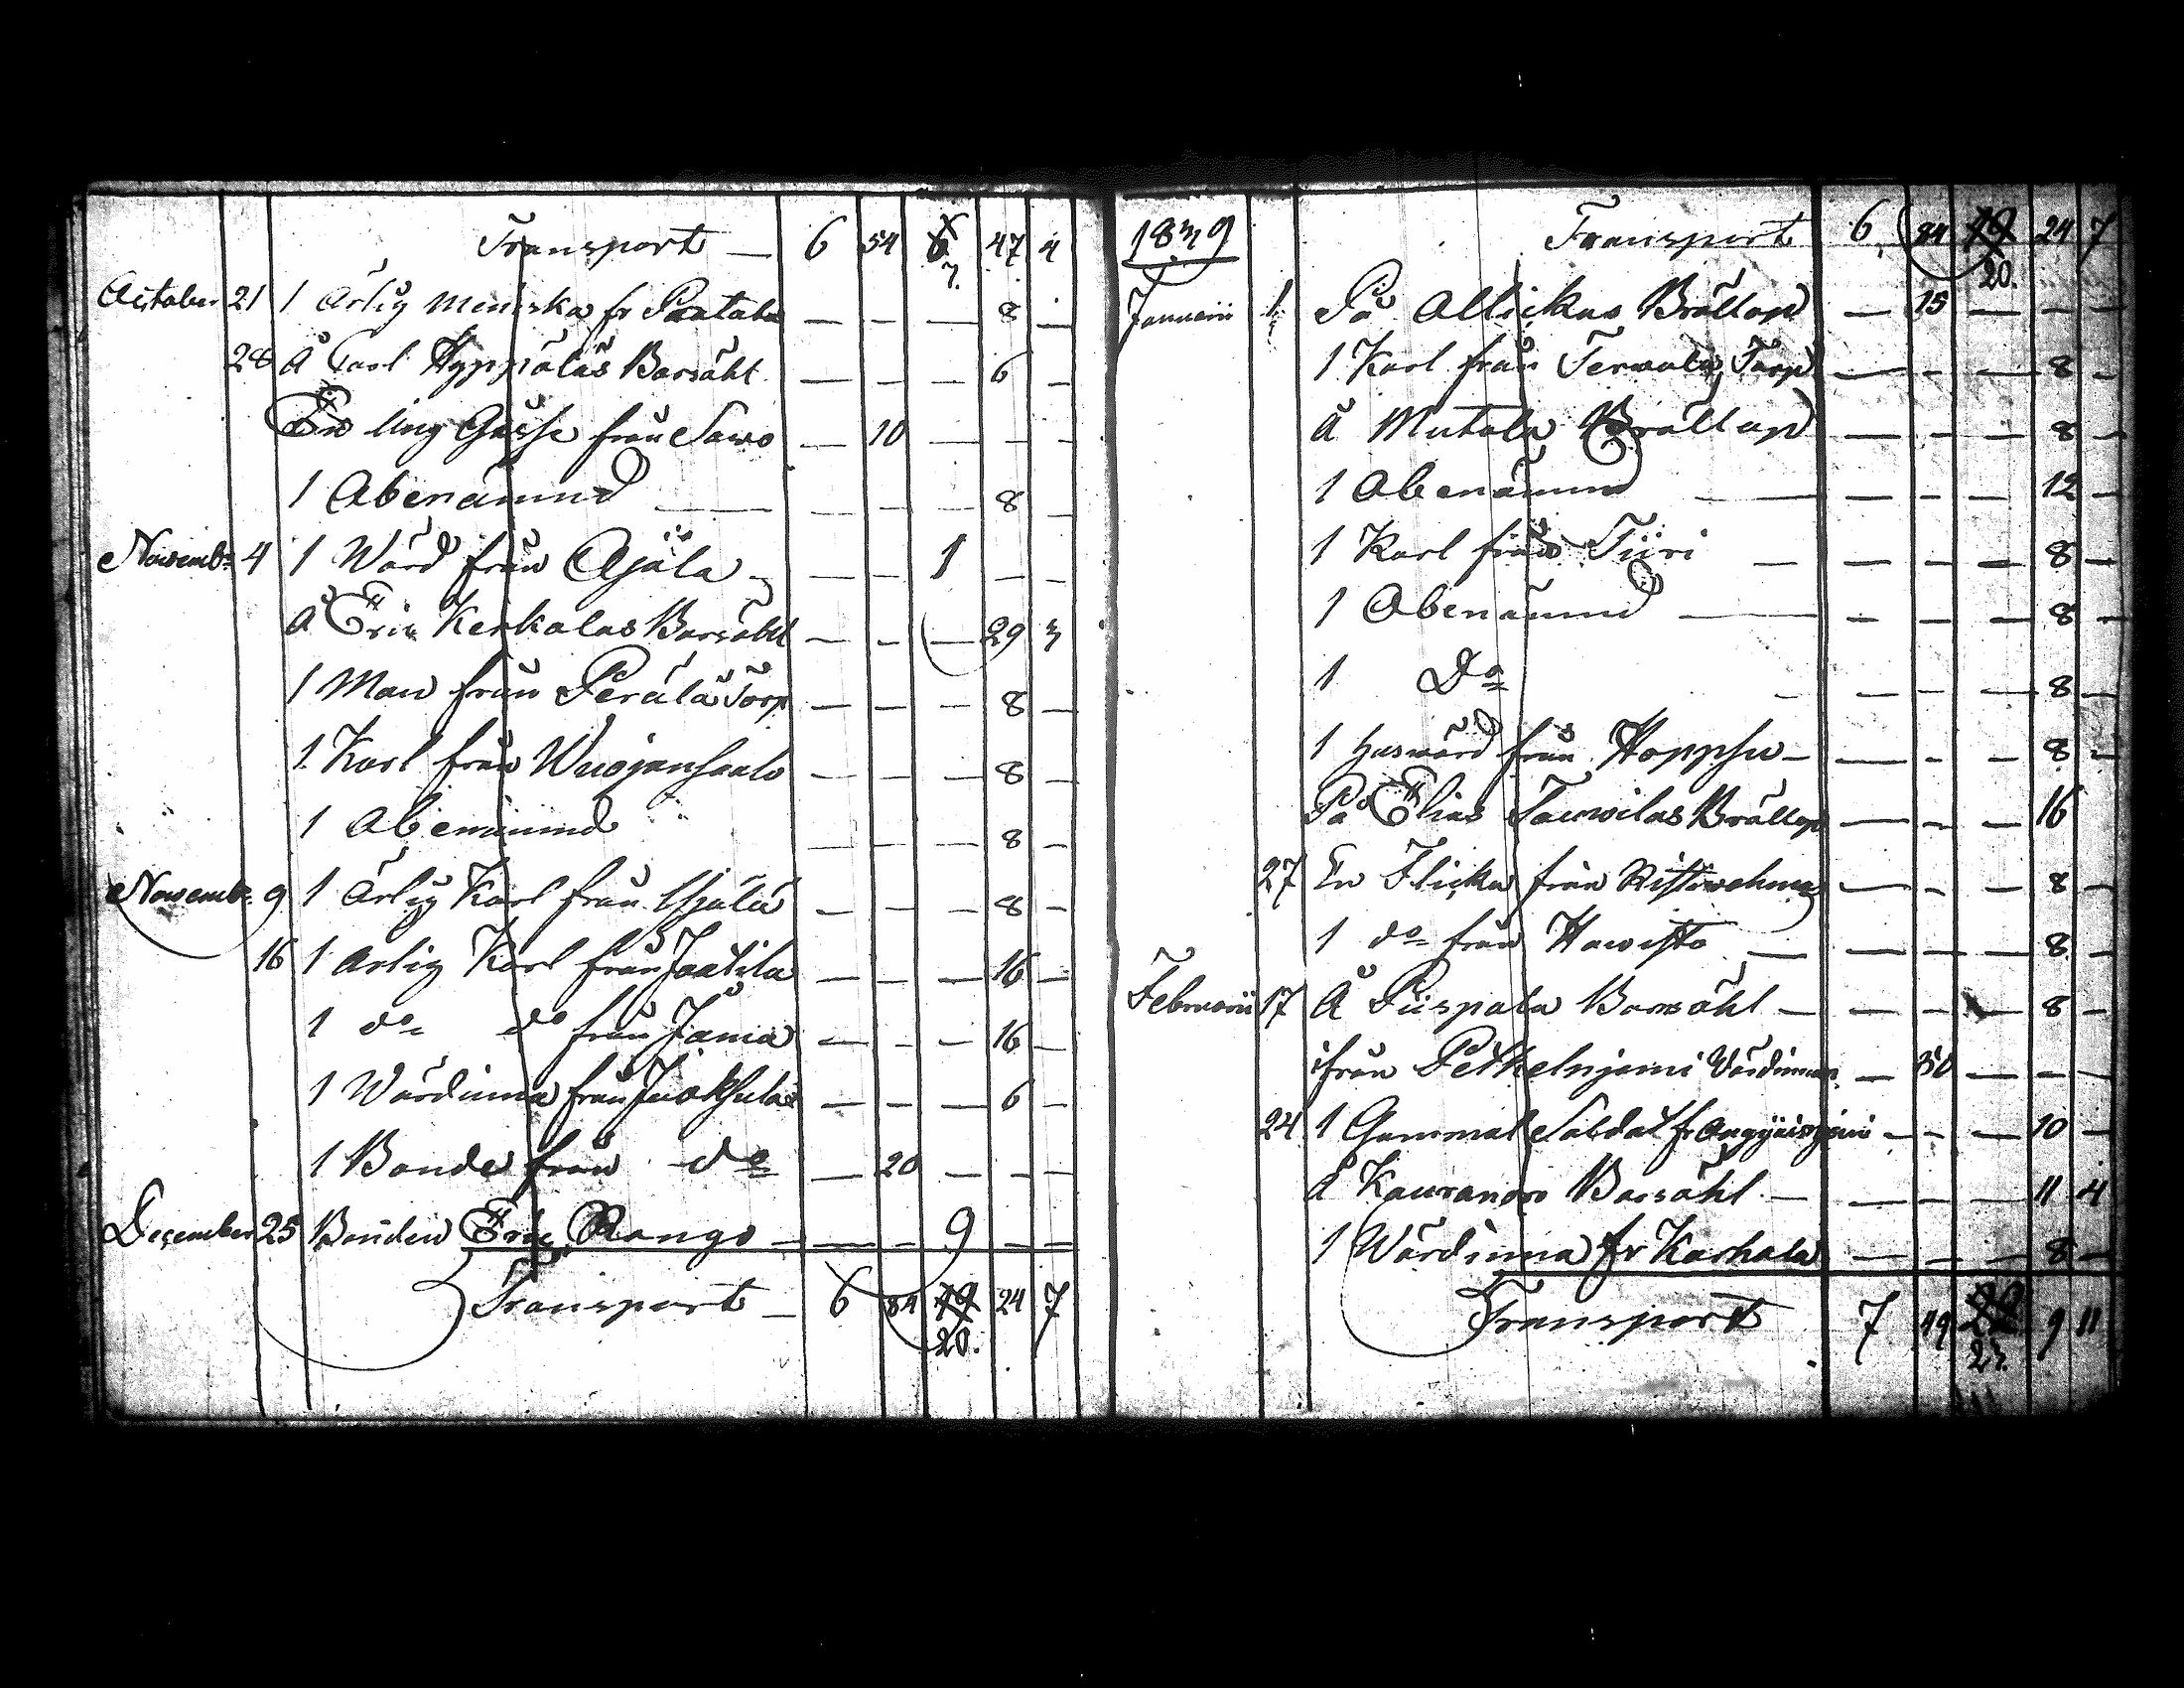 Transport — 6 54 6 47 4
7.
October 21 1 Ärlig Meniska fr Pentala — — — 8 —
28 Å Carl Hyppöläs Barsöhl — — — 6 —
En ung Gåsse från Sawo — 10 — — —
1 Obenämnd — — — — 8 —
Novembr 4 1 Wärd från Ajäla — — — 1 — —
Å Eric Kerkolas Barsöhl — — — 29 3
1 Man från Perälä Torp — — — 8 —
1 Karl från Wuojensalo — — — 8 —
1 Obenämnd — — — 8 —
Novembr 9 1 Ärlig Karl från Ujälä — — — 8 —
16 1 Ärlig Karl från Jaatila — — — 16 —
1 do do från Jama — — — 16 —
1 Wärdinna från Juoksula — — — 6 —
1 Bonde från do — 20 — — —
December 25 Bonden Eric Rango — — — 9 — —
Transport — 6 84 19 24 7
20.
1839 Transport 6 84 19 24 7
20.
Januarii 1 På Ollickas Bröllop — 15 — — —
1 Karl från Terwola Torp — — — 8 —
Å Mutola Bröllop — — — 8 —
1 Obenämnd — — — — 12 —
1 Karl från Tiiri — — — — 8 —
1 Obenämnd — — — — 8 —
1 Do — — — — 8 —
1 Huswärd från Hoppsu — — — — 8 —
På Elias Bröllop — — — 16
27 En Flicka från Ristiwehma — — — 8 —
1 do från Hawisto — — — — 8 —
Februarii 17 Å Piispala Barsöhl — — — — 8 —
ifrån Petkelnjemi Värdinnan — 50 — — —
24 1 Gammal Saldat fr — — — 10 —
Å Kauranoro Barsöhl — — — — 11 4
1 Wärdinna fr Karhala — — — 8 —
Transport 7 49 22 9 11
23.